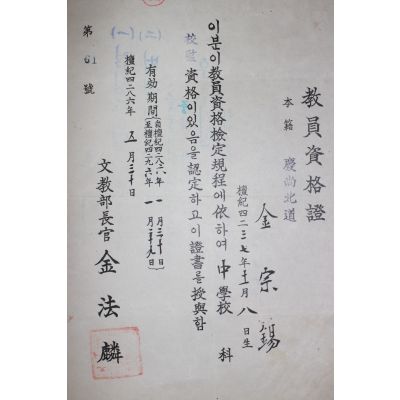 教員資格證
本籍 慶尚北道
金宗錫
檀紀四二三七年 月八日生
이분이教員資格檢定規程에依하여 中學校 科
校監 資格이있음을認定하고이證書를授與함
有効期間
自檀紀四二八六年 一月三十日
至檀紀四二九六年 一月二十九日
檀紀四二八六年 五月三十日
文教部長官 金法麟
第 61 號
(二) (一)